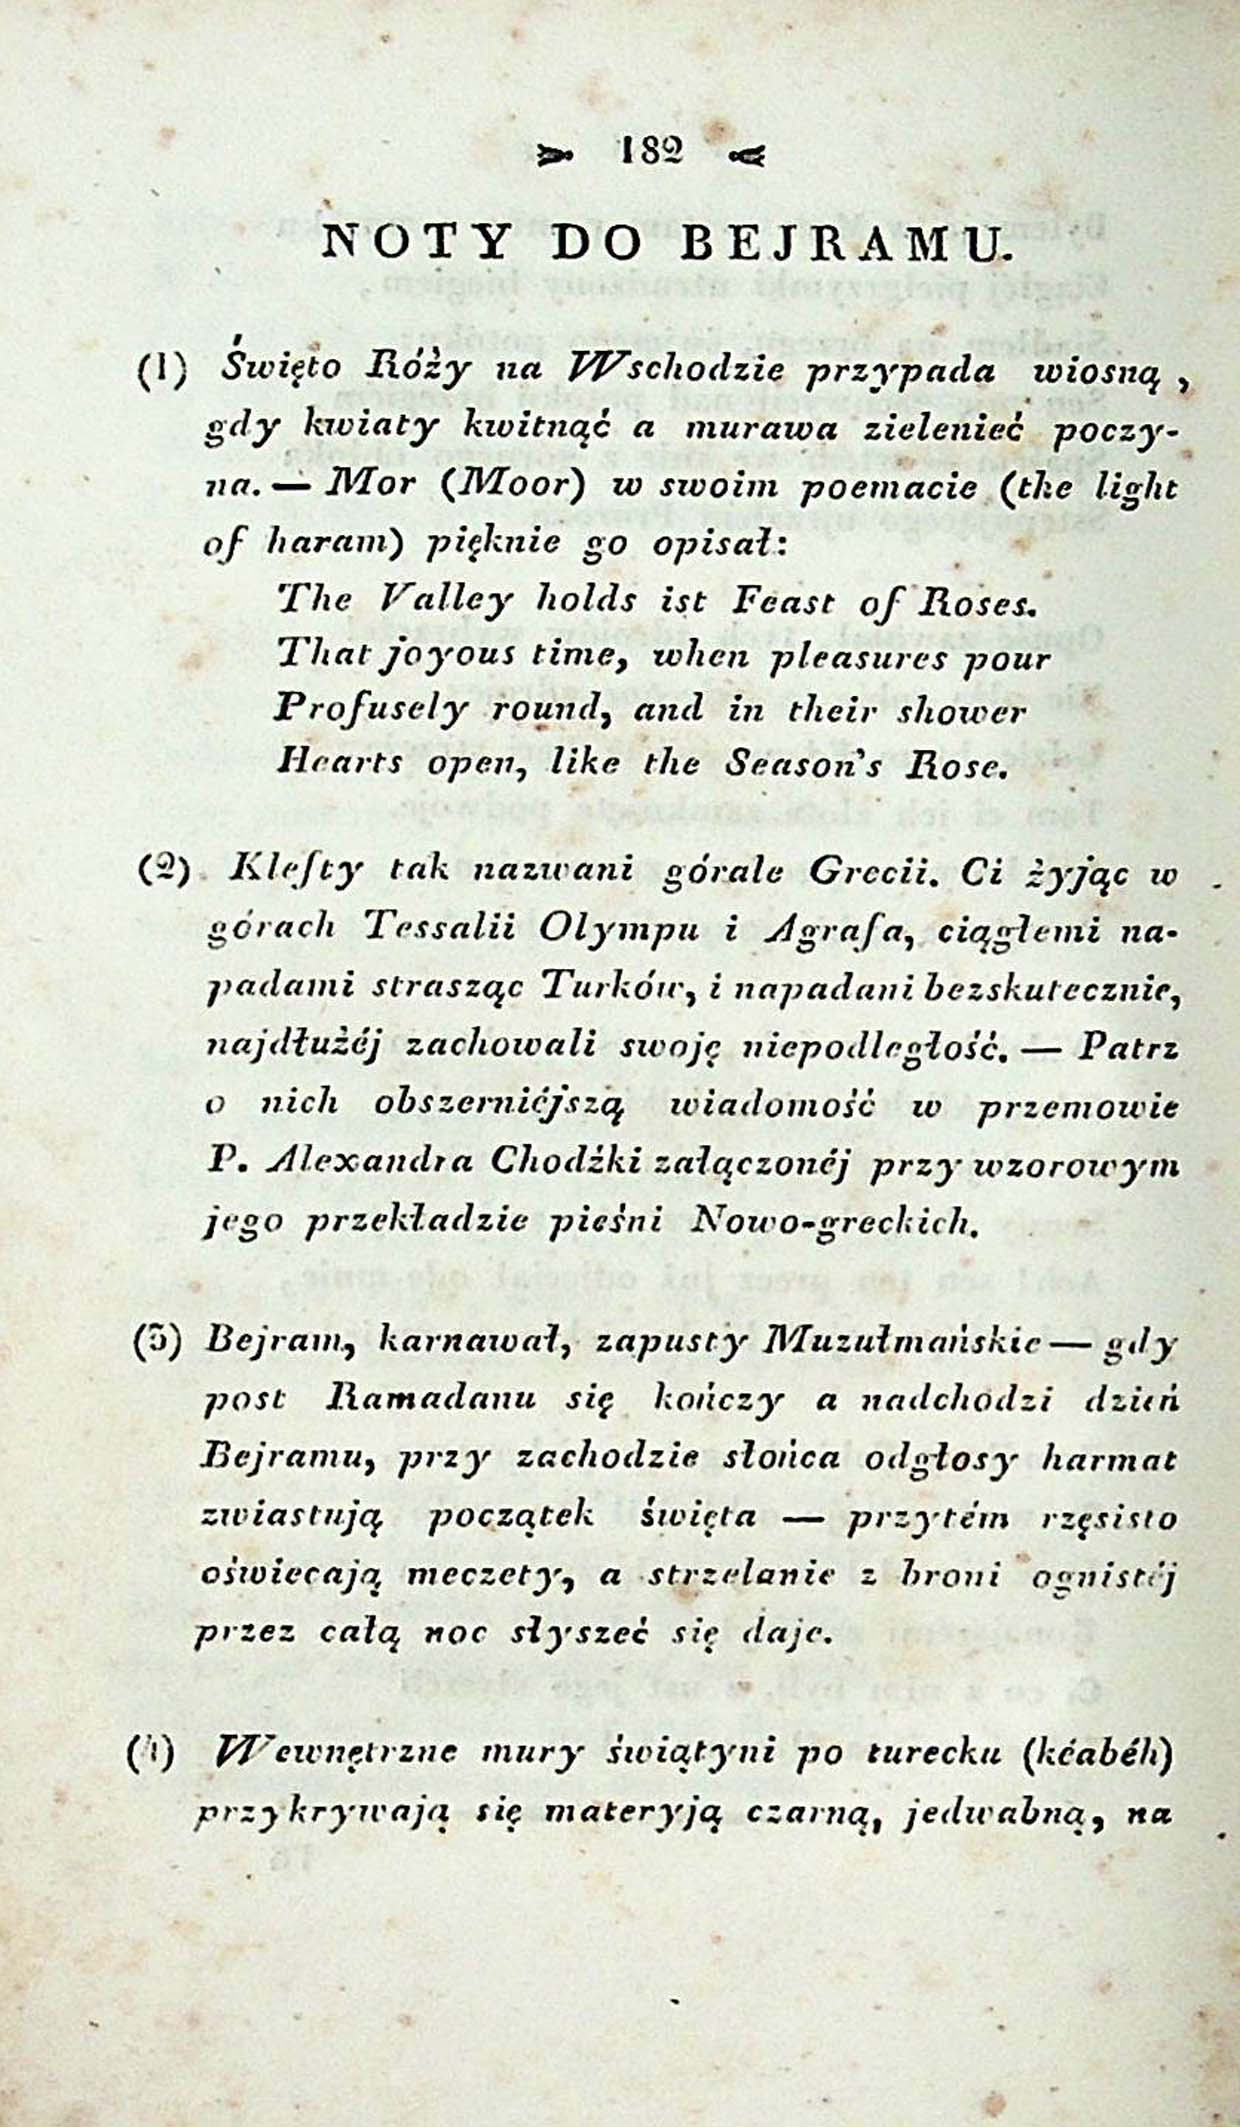 182
NOTY DO BEJRAMU.
(1) Święto Róży na Wschodzie przypada wiosną,
gdy kwiaty kwitnąć a murawa zielenieć poczy-
na. — Mor (Moor) w swoim poemacie (the light
of haram) pięknie go opisał:
The Valley holds ist Feast of Roses.
That joyous time, when pleasures pour
Profusely round, and in their shower
Hearts open, like the Season's Rose.
(2) Klefty tak nazwani górale Grecii. Ci żyjąc w
górach Tessalii Olympu i Agrafa, ciągłemi na-
padami strasząc Turków, i napadani bezskutecznie,
najdłużéj zachowali swoję niepodległość. — Patrz
o nich obszerniéjszą wiadomość w przemowie
P. Alexandra Chodźki załączonéj przy wzorowym
jego przekładzie pieśni Nowo-greckich.
(3) Bejram, karnawał, zapusty Muzułmańskie — gdy
post Ramadanu się kończy a nadchodzi dzień
Bejramu, przy zachodzie słońca odgłosy harmat
zwiastują początek święta — przytém rzęsisto
oświecają meczety, a strzelanie z broni ognistéj
przez całą noc słyszeć się daje.
(4) Wewnętrzne mury świątyni po turecku (kéabéh)
przykrywają się materyją czarną, jedwabną, na